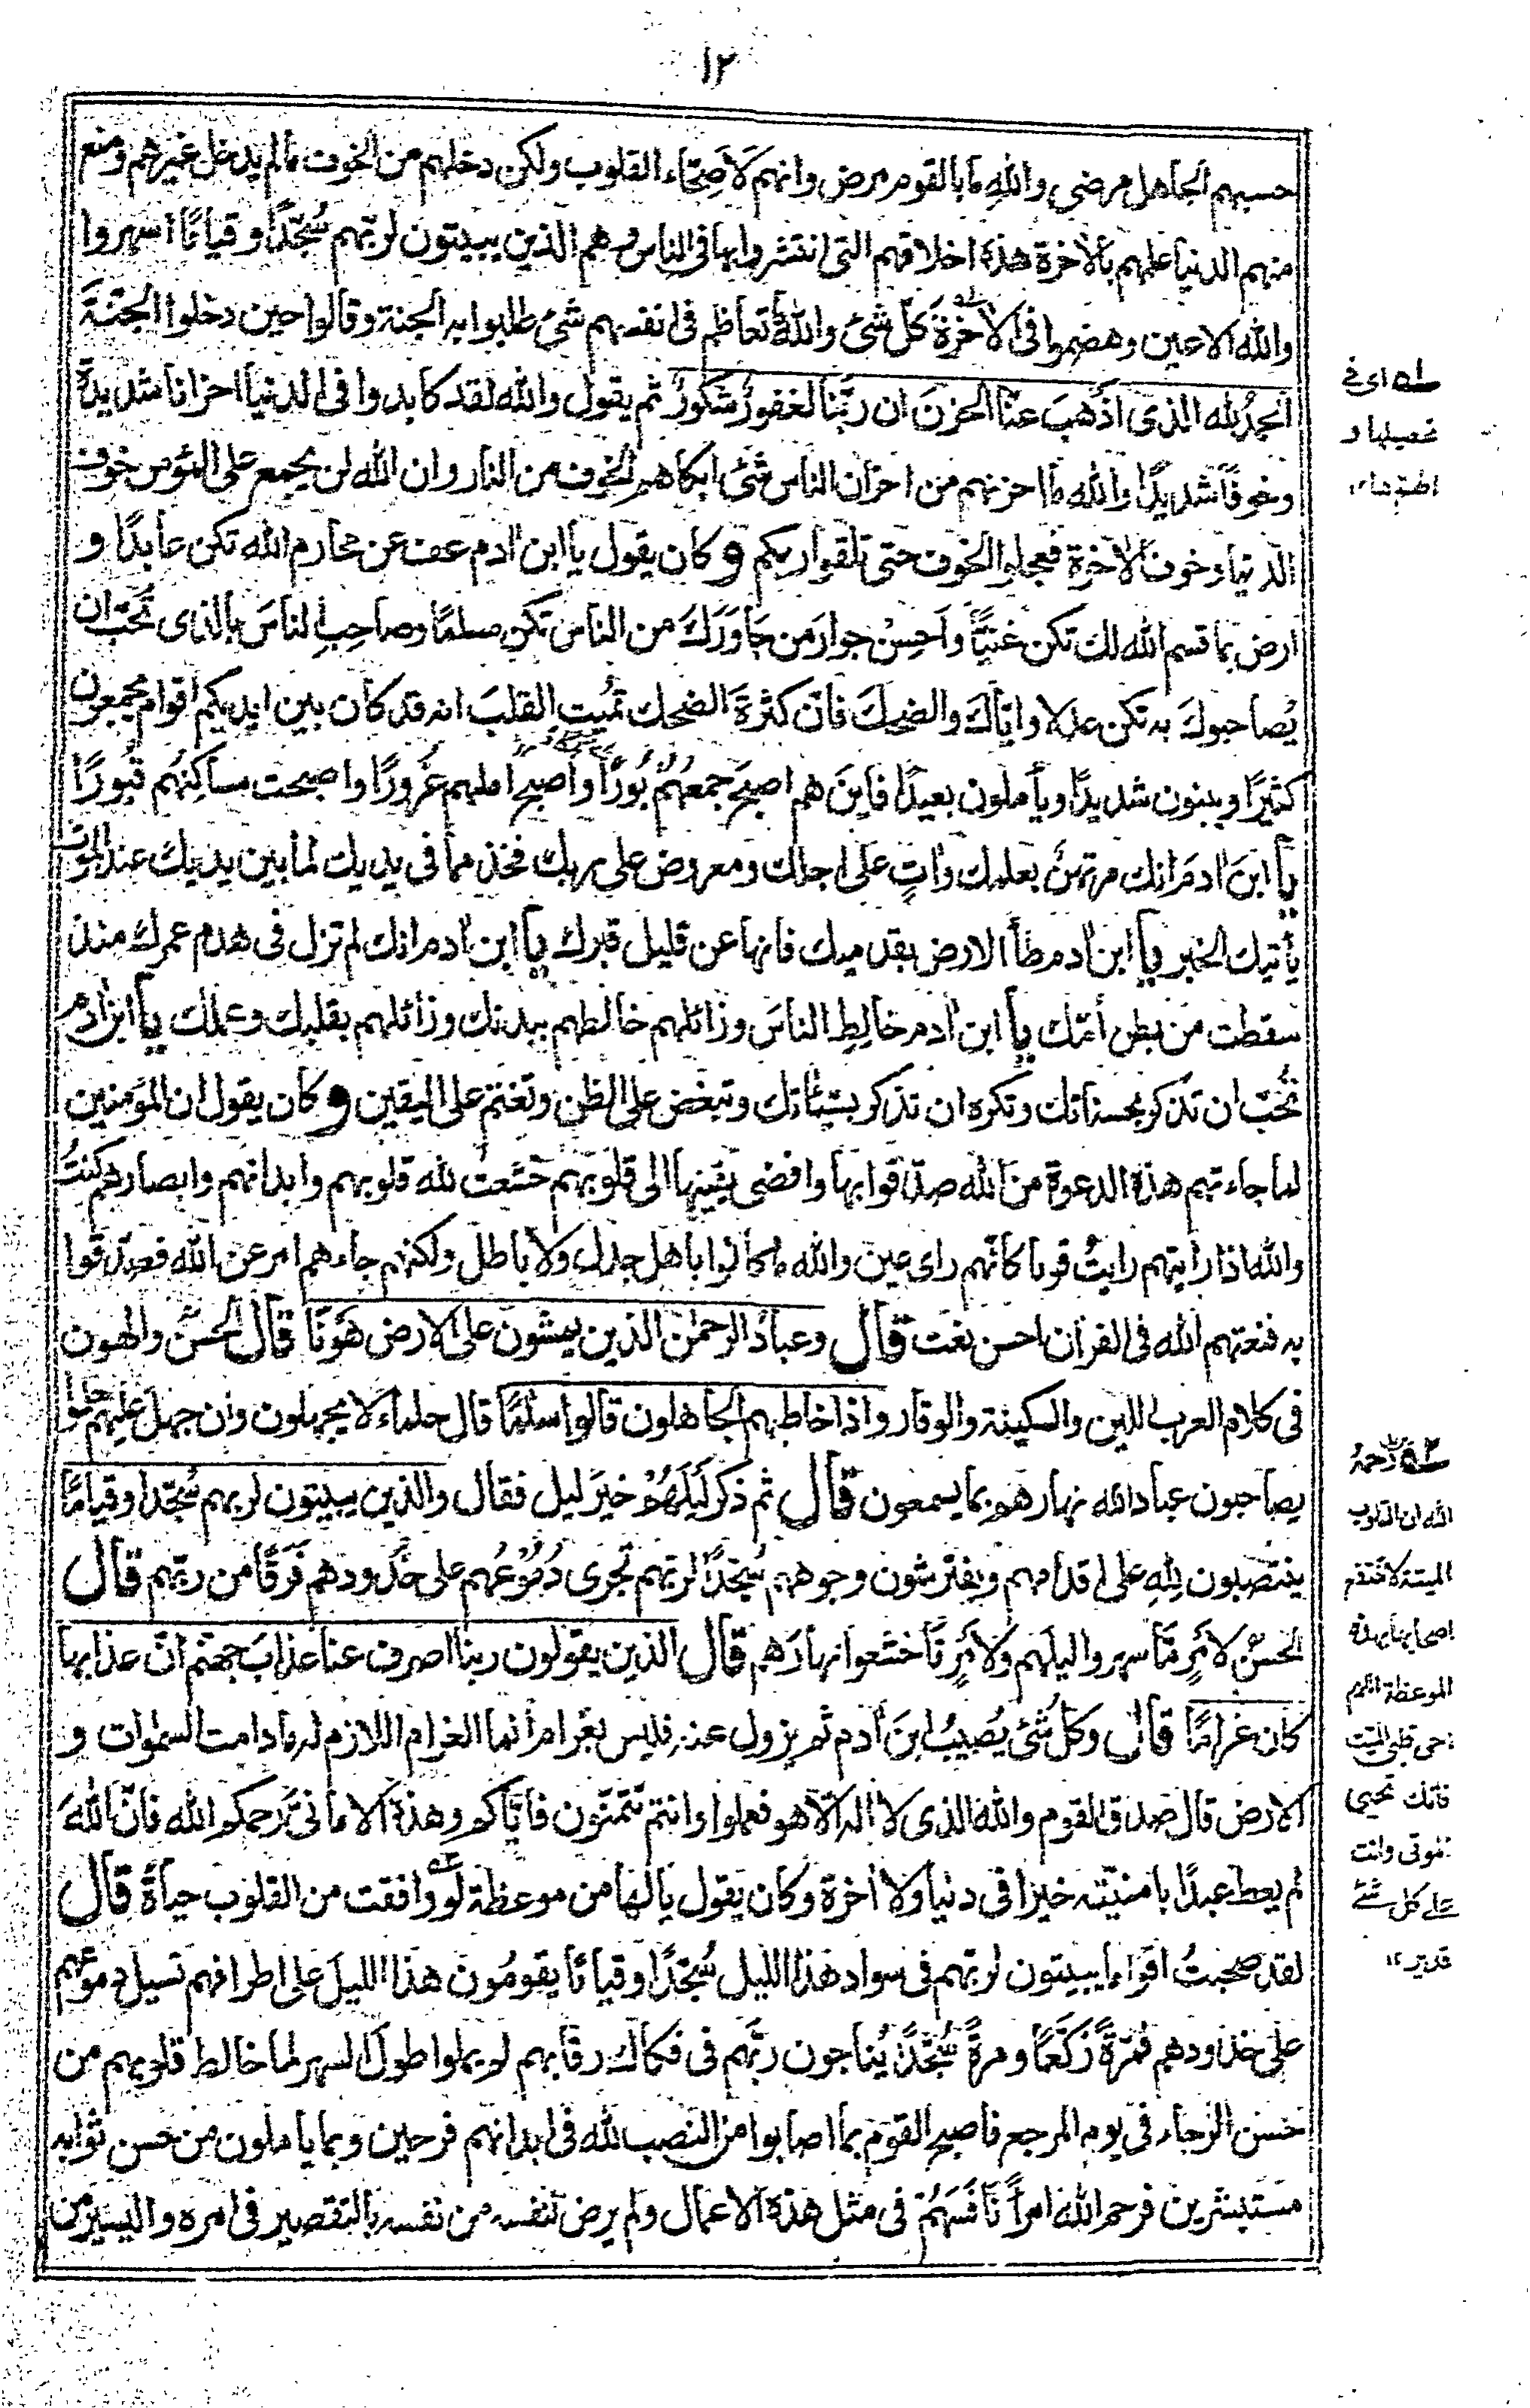 ١٢
حسبهم الجاهل مرضى والله ما بالقوم مرض وانهم لَاَصِحّاء القلوب ولكن دخلهم من الخوف مالم يدخل غيرهم ومنع
منهم الدنيا علمهم بالاٰخرة هذه اخلاقهم التى انتشروا بها فى الناس وهم الذين يبيتون لربّهم سُجّدًا وقيامًا اسهروا
والله الاعين وهضموا فى الاٰخرة كلّ شئ والله ما تعاظم فى انفسهم شئ طلبوا به الجنة وقالوا حين دخلوا الجنّةَ
الحمدُ لله الذى اَذْهبَ عنّا الحزنَ ان ربّنا لغفورٌ شكورٌ ثم يقول والله لقد كابدوا فى الدنيا احزانا شديدةً
وخوفًا شديدًا والله ما احزنهم من احزان الناس شئ ابكاهم الخوف من النار وان الله لن يجمع على المؤمن خوف
الدنيا وخوف الاٰخرة فعجلوا الخوف حتى تلقوا ربكم و كان يقول يا ابن اٰدم عف عن محارم الله تكن عابدًا و
ارض بما قسم الله لك تكن غنيًّا وأحسِنْ جوارَ من جَاوَرَكَ من الناس تكن مسلمًا وصاحِبِ الناسَ بالذى تُحبّ ان
يُصاحبوكَ به تكن عدلا وايّاكَ والضحِكَ فانّ كثرةَ الضحك تُميت القلبَ انه قد كان بين ايديكم اقوام يجمعون
كثيرًا ويبنون شديدًا ويأملون بعيدًا فاَينَ هم اصبحَ جمعُهُمْ بُورًا واصبح املهم غُرورًا واصبحت مساكِنُهم قبُورًا
يا ابنَ اٰدمَ انك مرتهنٌ بعملك واٰتٍ على اجلك ومعروض على ربك فخذ مما فى يديك لما بين يديك عند الموت
يأتيك الخبر يا ابن اٰدم طأ الارض بقدميك فانها عن قليل قبرك يا ابن اٰدم انك لم تزل فى هدم عمرك منذ
سقطت من بطن أمّك يا ابن اٰدم خالِطِ الناسَ وزائلهم خالطهم ببدنك وزائلهم بقلبك وعملك يا ابن اٰدم
تُحبّ ان تذكر بحسناتك وتكره ان تذكر بسيّئاتك وتبغض على الظن وتغتم على اليقين و كان يقول ان المؤمنين
لما جاءتهم هذه الدعوة من الله صدّقوا بها وافضى يقينها الى قلوبهم خشعت لله قلوبهم وابدانهم وابصارهم كنتُ
والله اذا رايتهم رايتُ قوما كانّهم راى عين والله ما كانوا باهل جدل ولا باطل ولكنهم جاءهم امر عن الله فصدّقوا
به فنعتهم الله فى القراٰن احسن نعت قال وعبادُ الرحمٰن الذين يمشون على الارض هَونًا قال الحسنُ والهون
فى كلام العرب اللين والسكينة والوقار واذا خاطبهم الجاهلون قالوا سلٰمًا قال حلماء لا يجهلون وان جهل عليهم حلموا
يصاحبون عباد الله نهارهم بما يسمعون قال ثم ذكر لَيلَهُمْ خيرَ ليل فقال والذين يبيتون لربهم سُجّدًا وقيامًا
ينتصبون لِلّٰهِ على اقدامهم ويفترشون وجوههم سُجّدًا لربّهم تَجرى دُمُوْعُهم على خُدُودهم فَرَقًا من ربّهم قال
الحسنُ لاَمرٍ مّا سهروا ليلَهم ولاَمرٍ مّا خشعوا نهارَهم قال الذين يقولون ربنا اصرف عنا عذابَ جهنّم انّ عذابها
كان غرامًا قال وكل شئ يُصِيبُ ابنَ اٰدم ثم يزول عنه فليس بغرام انما الغرام اللازم له ما دامت السمٰوات و
الارض قال صدق القوم والله الذى لا الٰه الّا هو فعلموا وانتم تتمنّون فايّاكم وهذه الامانىّ رحمكم الله فانّ اللهَ
لم يعط عبدًا بامنيّته خيرا فى دنيا ولا اٰخرة وكان يقول يالها من موعظة لو وافقت من القلوب حياةً قال
لقد صحبتُ اقواما يبيتون لربّهم فى سواد هذا الليل سُجّدًا وقيامًا يقومُون هذا الليلَ على اطرافهم تسيل دموعهم
على خدودهم فمرّةً رُكّعًا ومرةً سُجّدًا يُناجون ربّهم فى فكاك رقابهم لم يملوا طولَ السهر لما خالط قلوبهم من
حسن الرجاء فى يوم المرجع فاصبح القوم بما اصابوا من النصب لله فى ابدانهم فرحين وبما ياملون من حسن ثوابه
مستبشرين فرحم الله امرأً نافَسَهُمْ فى مثل هذه الاعمال ولم يرض لنفسه من نفسه بالتقصير فى امره واليسير من
اى فى
تحصيلها و
رحمه
الله ان القلوب
الميتة لا تنتفع
اصحابها بهذه
الموعظة اللهم
احى قلبى الميت
فانك تحيى
الموتى وانت
على كل شئ
قدير ١٢